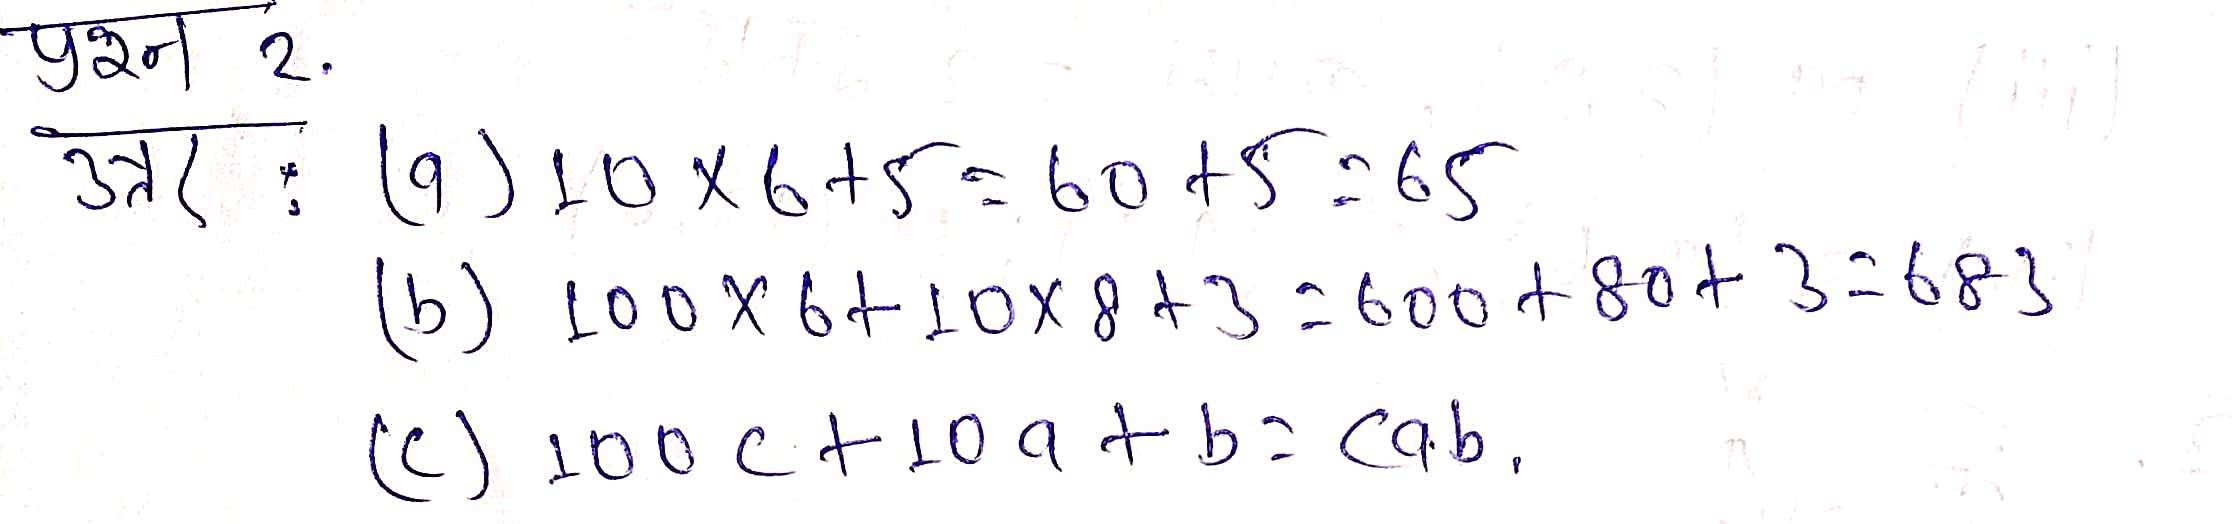 प्रश्न 2.
उत्तर : (a) 10 × 6 + 5 = 60 + 5 = 65
(b) 100 × 6 + 10 × 8 + 3 = 600 + 80 + 3 = 683
(c) 100 c + 10 a + b = cab.